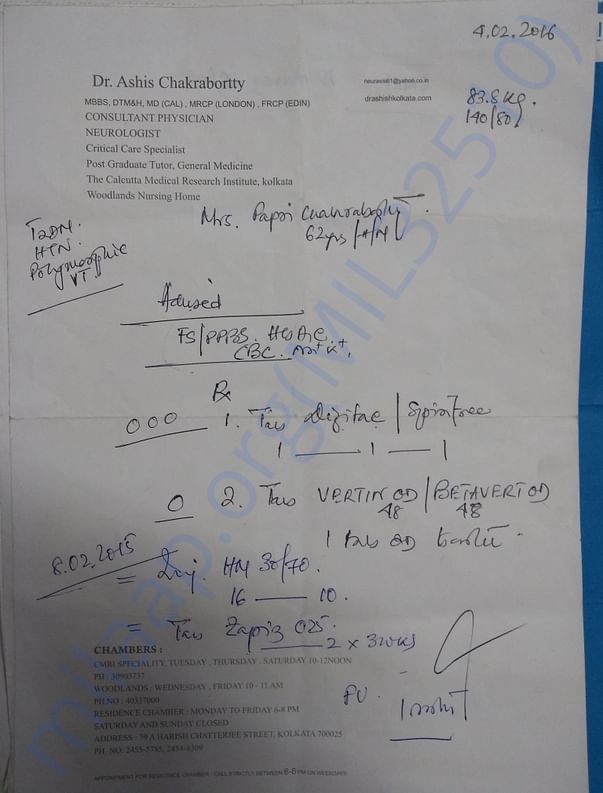 4.02.2016
Dr. Ashis Chakrabortty
neuravsa61@yahoo.co.in
MBBS, DTM&H, MD (CAL) , MRCP (LONDON) , FRCP (EDIN)
drashishkolkata.com
83.8 Kg.
140/80
CONSULTANT PHYSICIAN
NEUROLOGIST
Critical Care Specialist
Post Graduate Tutor, General Medicine
The Calcutta Medical Research Institute, kolkata
Woodlands Nursing Home
Mrs. Papri Chakraborty.
62yrs/H/M
T2DM.
HTN.
Polymorphic
VT.
Advised
FS/PPBS. HbA1C.
CBC. Na+ K+,
Rx
000 1. Tab
1 — 1 — 1
0 2. Tab VERTIN OD/BETAVERT OD
48 48
1 tab OD
8.02.2015
= Inj. HM 30/70.
16 — 10.
= Tab Zapiz 025.
2 x 3wks
CHAMBERS :
CMRI SPECIALITY, TUESDAY , THURSDAY . SATURDAY 10-12NOON
PH : 30903737
WOODLANDS : WEDNESDAY , FRIDAY 10 - 11 AM
PH.NO : 40337000
RESIDENCE CHAMBER : MONDAY TO FRIDAY 6-8 PM
SATURDAY AND SUNDAY CLOSED
ADDRESS : 79 A HARISH CHATTERJEE STREET, KOLKATA 700025
PH. NO: 2455-5785, 2454-8309
1 month
APPOINTMENT FOR RESIDENCE CHAMBER : CALL STRICTLY BETWEEN 6-8 PM ON WEEKDAYS
milaap.org(MIL32550)